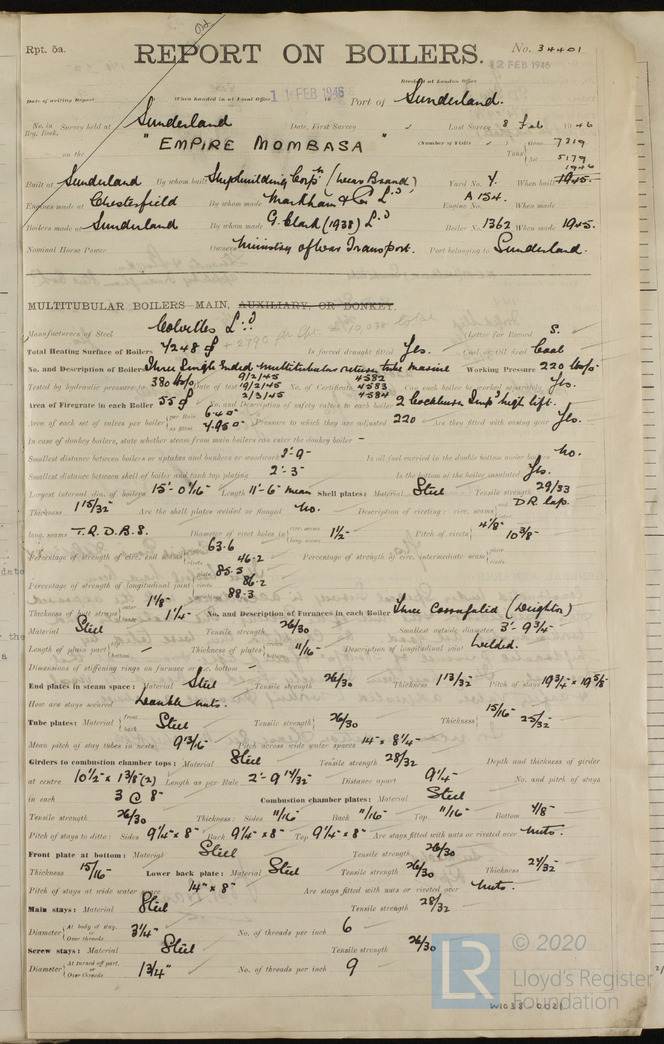 Rpt. 5a.
REPORT ON BOILERS.
No. 34401
12 FEB 1946
Received at London Office
Date of writing Report When handed in at Local Office 11 FEB 1946 Port of Sunderland.
No. in Reg. Book. Survey held at Sunderland Date, First Survey Last Survey 8 Feb 1946
on the "EMPIRE MOMBASA" (Number of Visits ) Gross 7319
Tons Net 5179
1946
Built at Sunderland By whom built Shipbuilding Corpn (Wear Branch) Yard No. 4. When built 1945.
Engines made at Chesterfield By whom made Markham & Co Ld Engine No. A 154. When made
Boilers made at Sunderland By whom made G. Clark (1938) Ld Boiler No. 1362 When made 1945.
Nominal Horse Power Owners Ministry of War Transport. Port belonging to Sunderland.
MULTITUBULAR BOILERS MAIN, AUXILIARY, OR DONKEY.
Manufacturers of Steel Colvilles Ld (Letter for Record S.
Total Heating Surface of Boilers 7248 Is forced draught fitted Yes. Coal or Oil fired Coal
No. and Description of Boilers Three Single Ended multitubular return tube marine Working Pressure 220
Tested by hydraulic pressure to 380 Date of test 9/2/45 19/2/45 2/3/45 No. of Certificate 4582 4583 4584 Can each boiler be worked separately Yes.
Area of Firegrate in each Boiler 55 No. and Description of safety valves to each boiler 2 Cockburn Impd high lift.
Area of each set of valves per boiler per Rule 6.40 as fitted 7.950 Pressure to which they are adjusted 220 Are they fitted with easing gear Yes.
In case of donkey boilers, state whether steam from main boilers can enter the donkey boiler -
Smallest distance between boilers or uptakes and bunkers or woodwork 2'-9" Is oil fuel carried in the double bottom under boilers No.
Smallest distance between shell of boiler and tank top plating 2'-3" Is the bottom of the boiler insulated Yes.
Largest internal dia. of boilers 15'-0 1/16" Length 11'-6" mean Shell plates: Material Steel Tensile strength 29/33
Thickness 1 15/32" Are the shell plates welded or flanged No. Description of riveting: circ. seams D R Lap.
long. seams T. R. D. B. S. Diameter of rivet holes in 1 1/2" Pitch of rivets 4 1/8" 10 3/8"
Percentage of strength of circ. end seams plate 63.6 rivets 46.2 Percentage of strength of circ. intermediate seam plate rivets
Percentage of strength of longitudinal joint plate 85.5 rivets 86.2 combined 88.3
Thickness of butt straps outer 1 1/8" inner 1 1/4" No. and Description of Furnaces in each Boiler Three Corrugated (Deighton)
Material Steel Tensile strength 26/30 Smallest outside diameter 3'-9 3/4"
Length of plain part top bottom Thickness of plates 11/16" Description of longitudinal joint Welded.
Dimensions of stiffening rings on furnace or c.c. bottom -
End plates in steam space: Material Steel Tensile strength 26/30 Thickness 1 13/32" Pitch of stays 19 3/4" x 19 5/8"
How are stays secured Double nuts.
Tube plates: Material front back Steel Tensile strength 26/30 Thickness 15/16" 25/32"
Mean pitch of stay tubes in nests 9 13/16" Pitch across wide water spaces 14" x 8 1/4"
Girders to combustion chamber tops: Material Steel Tensile strength 28/32 Depth and thickness of girder
at centre 10 1/2" x 1 3/8" (2) Length as per Rule 2'-9 17/32" Distance apart 9 1/4" No. and pitch of stays
in each 3 @ 8" Combustion chamber plates: Material Steel
Tensile strength 26/30 Thickness: Sides 11/16" Back 11/16" Top 11/16" Bottom 7/8"
Pitch of stays to ditto: Sides 9 1/4" x 8" Back 9 1/4" x 8" Top 9 1/4" x 8" Are stays fitted with nuts or riveted over nuts.
Front plate at bottom: Material Steel Tensile strength 26/30
Thickness 15/16" Lower back plate: Material Steel Tensile strength 26/30 Thickness 27/32
Pitch of stays at wide water space 14" x 8" Are stays fitted with nuts or riveted over nuts.
Main stays: Material Steel Tensile strength 28/32
Diameter At body of stay, or Over threads 3 1/4" No. of threads per inch 6
Screw stays: Material Steel Tensile strength 26/30
Diameter At turned off part, or Over threads 1 3/4" No. of threads per inch 9
© 2020
LR Lloyd's Register
Foundation
W1038 0021